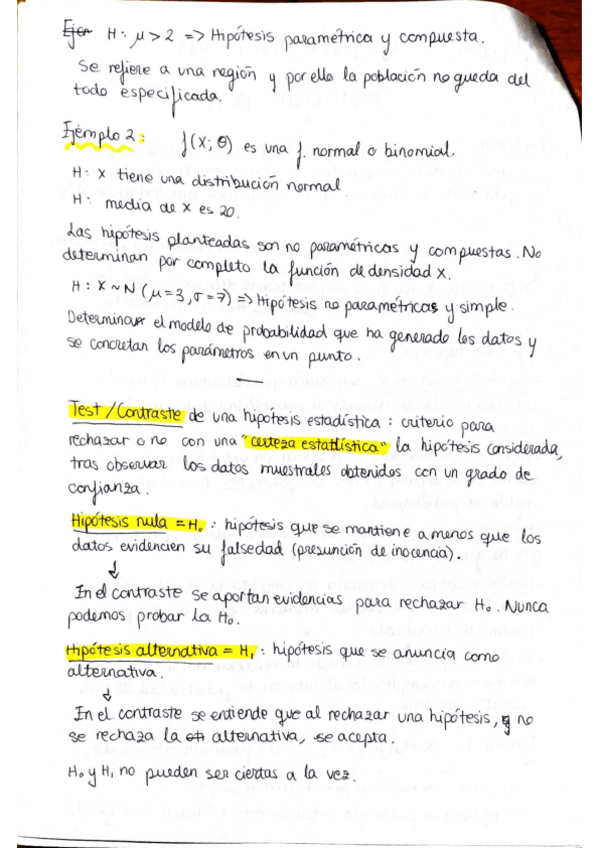 Ejer H: μ > 2 => Hipótesis paramétrica y compuesta.
Se refiere a una región y por ello la población no queda del
todo especificada.
Ejemplo 2: f(x; θ) es una f. normal o binomial.
H: x tiene una distribución normal
H: media de x es 20.
Las hipótesis planteadas son no paramétricas y compuestas. No
determinan por completo la función de densidad x.
H: X ~ N (μ = 3, σ = 7) => Hipótesis no paramétricas y simple.
Determinar el modelo de probabilidad que ha generado los datos y
se concretan los parámetros en un punto.
Test / Contraste de una hipótesis estadística: criterio para
rechazar o no con una "certeza estadística" la hipótesis considerada,
tras observar los datos muestrales obtenidos con un grado de
confianza.
Hipótesis nula = H₀: hipótesis que se mantiene a menos que los
datos evidencien su falsedad (presunción de inocencia).
↓
En el contraste se aportan evidencias para rechazar H₀. Nunca
podemos probar la H₀.
Hipótesis alternativa = H₁: hipótesis que se anuncia como
alternativa.
↓
En el contraste se entiende que al rechazar una hipótesis, y no
se rechaza la alternativa, se acepta.
H₀ y H₁ no pueden ser ciertas a la vez.